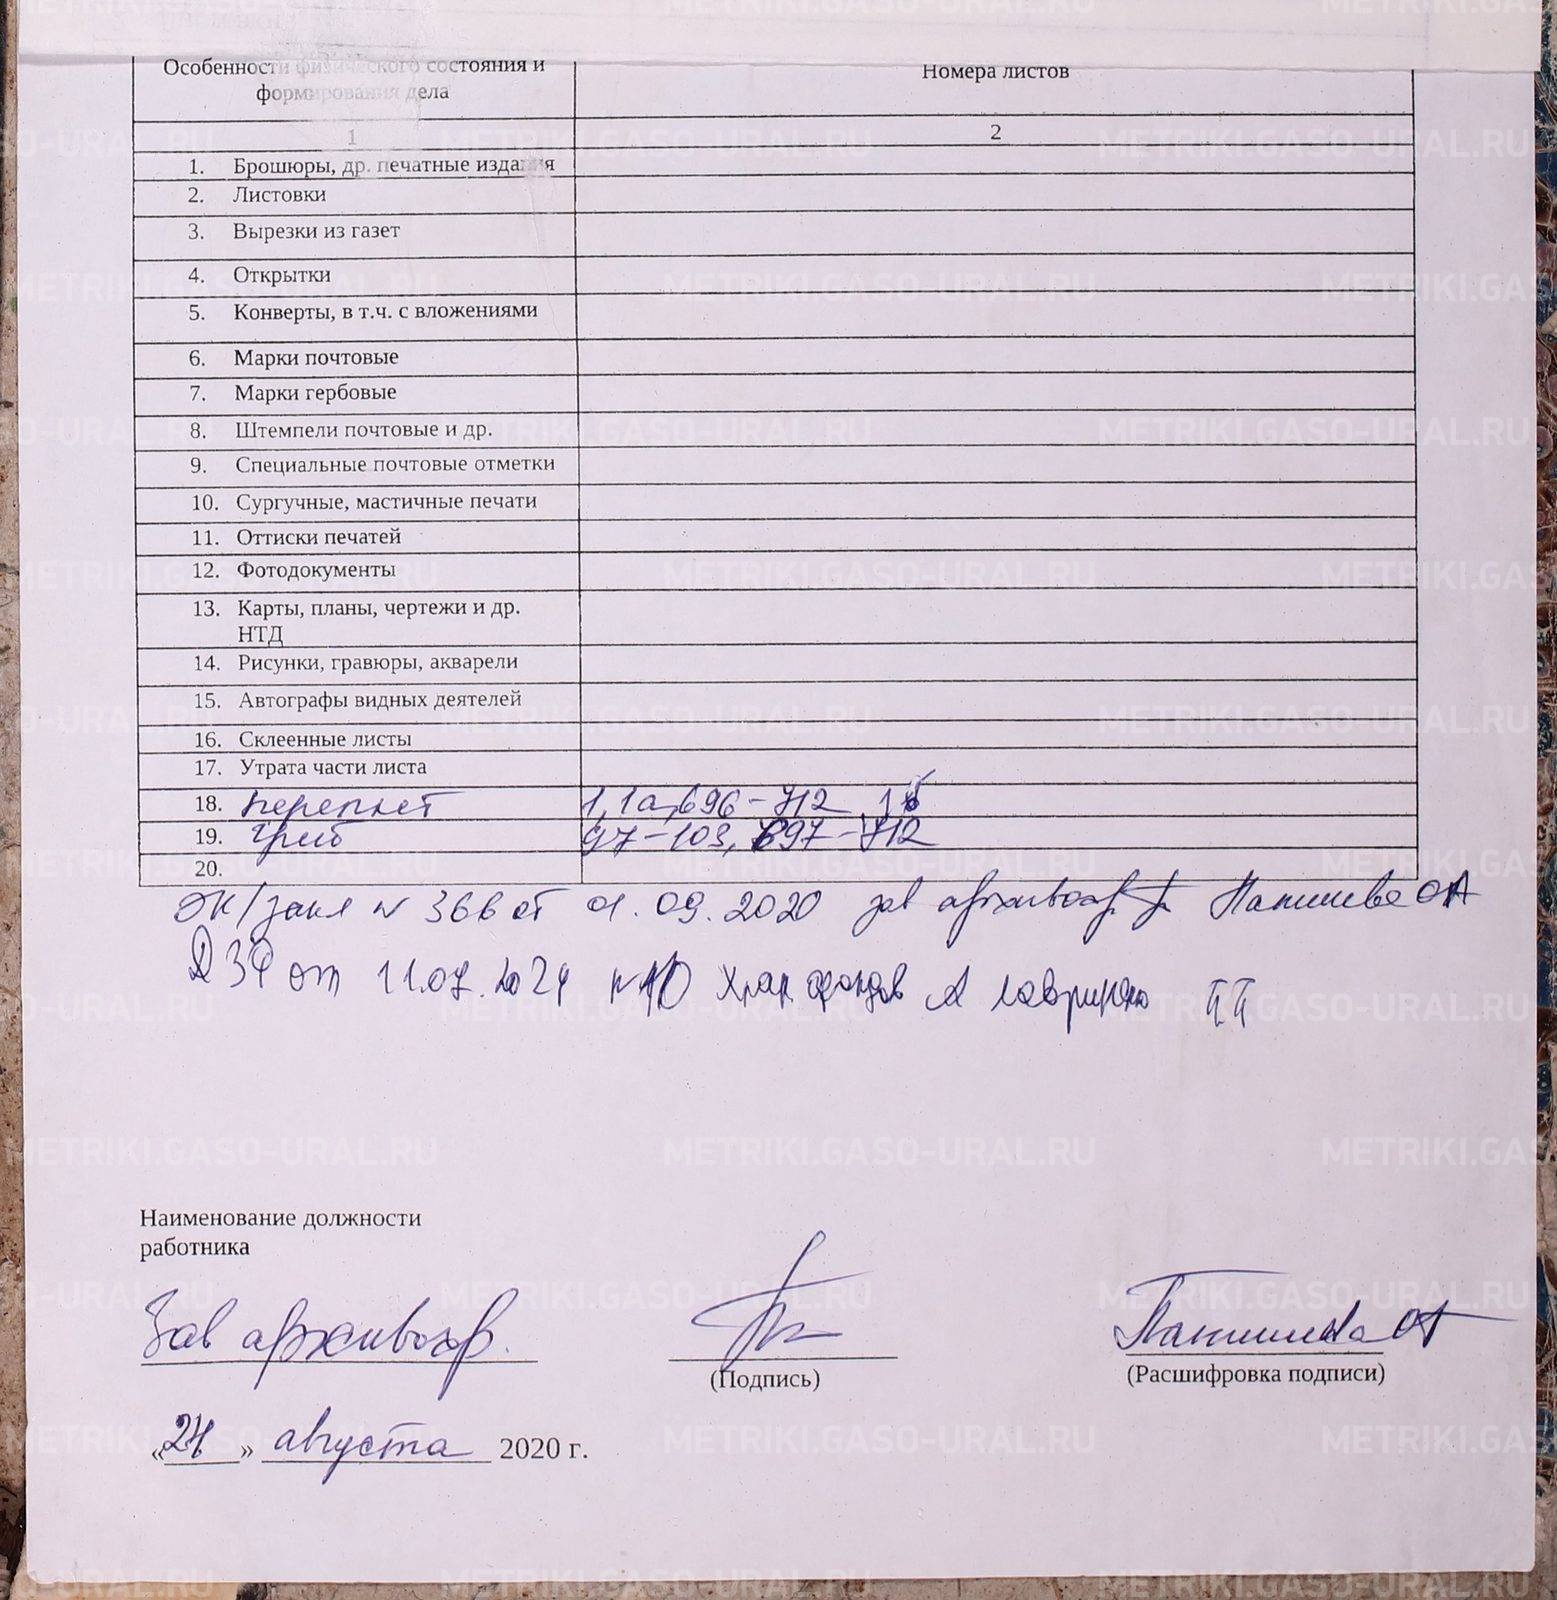 Особенности физического состояния и
формирования дела
Номера листов
1
2
1. Брошюры, др. печатные издания
2. Листовки
3. Вырезки из газет
4. Открытки
5. Конверты, в т.ч. с вложениями
6. Марки почтовые
7. Марки гербовые
8. Штемпели почтовые и др.
9. Специальные почтовые отметки
10. Сургучные, мастичные печати
11. Оттиски печатей
12. Фотодокументы
13. Карты, планы, чертежи и др.
НТД
14. Рисунки, гравюры, акварели
15. Автографы видных деятелей
16. Склеенные листы
17. Утрата части листа
18. переплет 1, 1а, 696-712, 1б
19. гриб 97-103, 697-712
20.
№ 366 от 01.09.2020 зав архивохр.
от 11.07.2024 Хран фондов
Наименование должности
работника
Зав архивохр.
(Подпись)
(Расшифровка подписи)
«24» августа 2020 г.
METRIKI.GASO-URAL.RU